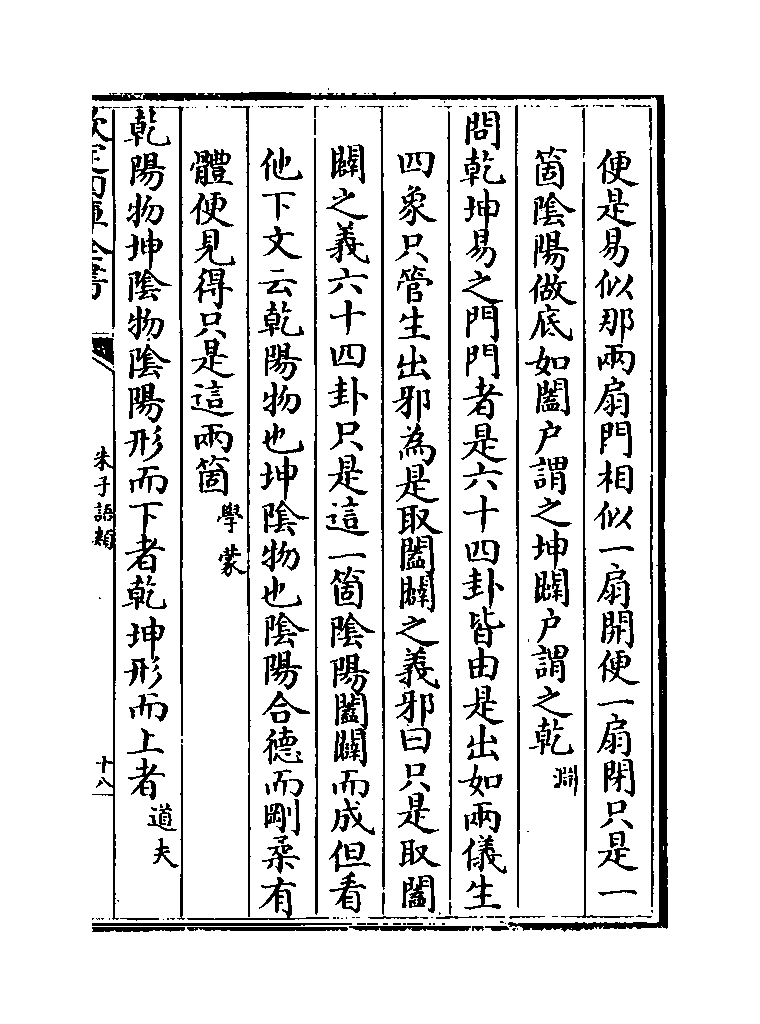 便是易似那兩扇門相似一扇開便一扇閉只是一
箇陰陽做底如闔户謂之坤闢户謂之乾淵
問乾坤易之門門者是六十四卦皆由是出如兩儀生
四象只管生出邪為是取闔闢之義邪曰只是取闔
闢之義六十四卦只是這一箇陰陽闔闢而成但看
他下文云乾陽物也坤陰物也陰陽合德而剛柔有
體便見得只是這兩箇學蒙
乾陽物坤陰物陰陽形而下者乾坤形而上者道夫
欽定四庫全書
朱子語類
十八